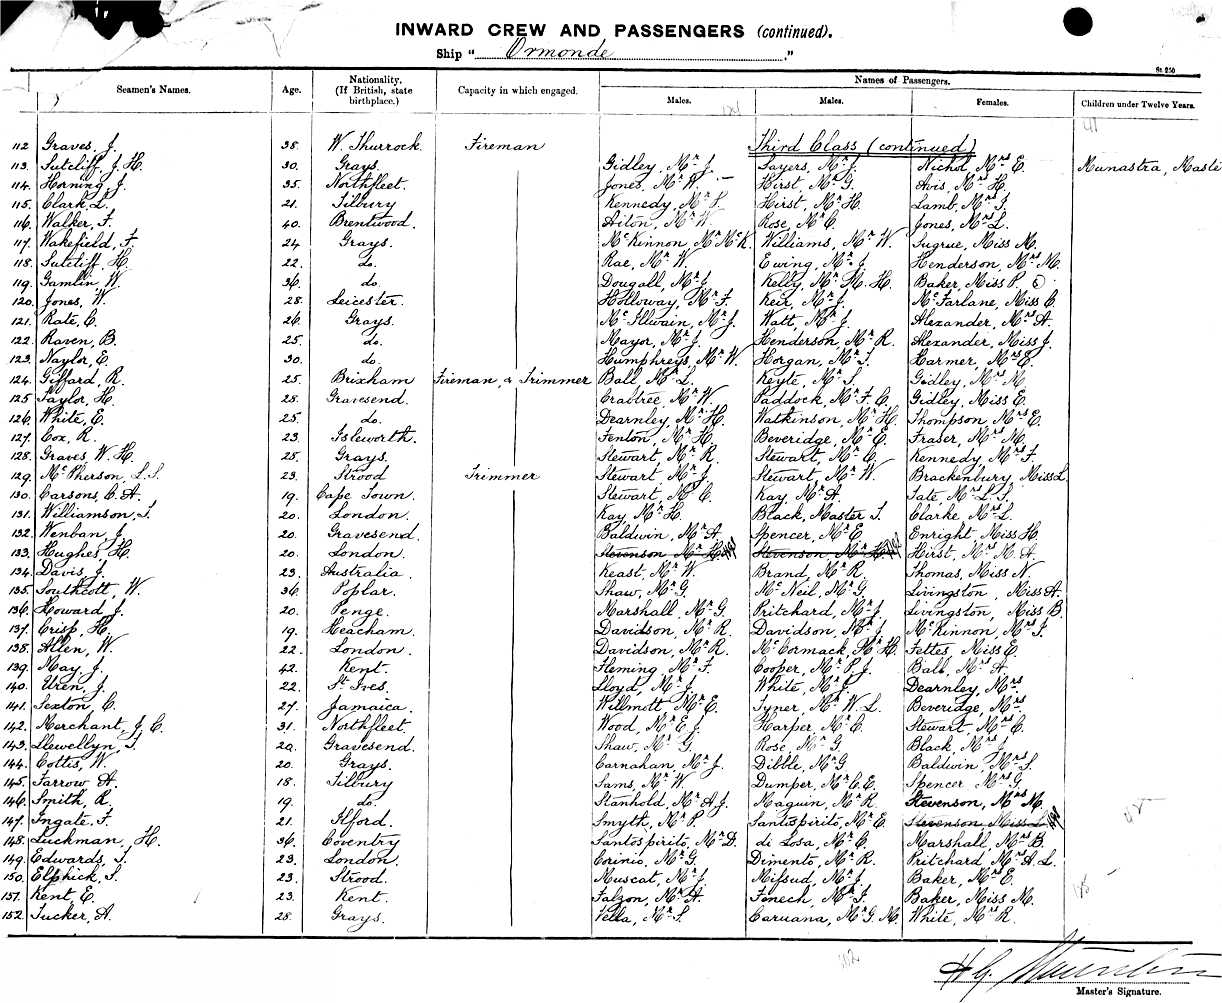 INWARD CREW AND PASSENGERS (continued).
Ship " Ormonde "
St. 250
Seamen's Names. Age. Nationality. (If British, state birthplace.) Capacity in which engaged. Names of Passengers.
Males. Males. Females. Children under Twelve Years.
112 Graves, J. 38. W. Thurrock. Fireman Third Class (continued)
113. Sutcliff, J. H. 30. Grays. Gidley, Mr J. Sayers, Mr J. Nichol, Mrs E. Munastra, Maste
114. Horning, J. 35. Northfleet. Jones, Mr W. Hirst, Mr G. Avis, Mrs H.
115. Clark, L. 21. Tilbury Kennedy, Mr P. Hirst, Mr H. Lamb, Mrs J.
116. Walker, F. 40. Brentwood. Aiton, Mr W. Rose, Mr C. Jones, Mrs L.
117. Wakefield, F. 24 Grays. McKinnon, Mr McK. Williams, Mr W. Sugrue, Miss M.
118. Sutcliff, H. 22. do. Rae, Mr W. Ewing, Mr J. Henderson, Mrs M.
119. Gamlin W. 36. do Dougall, Mr J. Kelly, Mr M. H. Baker, Miss P.
120. Jones, W. 28. Leicester. Holloway, Mr F. Keir, Mr J. McFarlane, Miss C.
121. Rate, C. 26. Grays. McIllwain, Mr J. Watt, Mr J. Alexander, Mrs A.
122. Raven, B. 25. do. Mayor, Mr J. Henderson, Mr R. Alexander, Miss J.
123. Naylor, E. 30. do. Humphreys, Mr W. Horgan, Mr T. Harmer, Mrs E.
124. Giffard, R. 25. Brixham Fireman, & Trimmer Ball, Mr L. Keyte, Mr S. Gidley, Mrs M.
125 Taylor, H. 28. Gravesend. Crabtree, Mr W. Paddock, Mr F. C. Gidley, Miss E.
126. White, E. 25. do. Dearnley, Mr H. Watkinson, Mr H. Thompson, Mrs E.
127. Cox, R. 23. Isleworth. Fenton, Mr H. Beveridge, Mr E. Fraser, Mrs M.
128. Graves W. H. 25. Grays. Stewart, Mr R. Stewart, Mr C. Kennedy Mrs F.
129. McPherson, L. S. 23. Strood Trimmer Stewart, Mr J. Stewart, Mr W. Brackenbury, Miss L.
130. Carsons, C. A. 19. Cape Town. Stewart, Mr C. Kay, Mr A. Tate, Mrs L. S.
131. Williamson, T. 20. London. Kay, Mr H. Black, Master T. Clarke, Mrs L.
132. Wenban, J. 20. Gravesend. Baldwin, Mr A. Spencer, Mr E. Enright, Miss H.
133. Hughes, H. 20. London. Stevenson Mr H. Stevenson Mr H. Hirst, Mrs M. A.
134. Davis, J. 23. Australia. Keast, Mr W. Brand, Mr R. Thomas, Miss N.
135. Southcott, W. 36. Poplar. Shaw, Mr G. McNeil, Mr G. Livingston, Miss A.
136. Howard J. 20. Penge. Marshall, Mr G. Pritchard, Mr J. Livingston, Miss B.
137. Crisp, H. 19. Heacham. Davidson, Mr R. Davidson, Mr J. McKinnon, Mrs J.
138. Allen, W. 22. London. Davidson, Mr R. McCormack, Mr H. Fettes, Miss E.
139. May, J. 42. Kent. Fleming, Mr F. Cooper, Mr P. J. Ball, Mrs A.
140. Uren, J. 22. St. Ives. Lloyd, Mr J. White, Mr J. Dearnley, Mrs.
141. Sexton, C. 27. Jamaica. Willmott, Mr E. Tyner, Mr W. L. Beveridge, Mrs.
142. Merchant, J. C. 31. Northfleet. Wood, Mr E. J. Harper, Mr C. Stewart, Mrs C.
143. Llewellyn, T. 29. Gravesend. Shaw, Mr G. Rose, Mr G. Black, Mrs J.
144. Cottis, W. 20. Grays. Carnahan, Mr J. Dibble, Mr G. Baldwin, Mrs S.
145. Farrow, A. 18. Tilbury Sams, Mr W. Dumper, Mr C. E. Spencer, Mrs G.
146. Smith, R. 19. do. Stanhold, Mr A. J. Maguin, Mr R. Stevenson, Mrs M.
147. Ingate, F. 21. Ilford. Smyth, Mr P. Santospirito, Mr E. Stevenson Miss
148. Luckman, H. 36. Coventry Santospirito, Mr D. di Losa, Mr C. Marshall, Mrs B.
149. Edwards, T. 23. London. Corinio, Mr G. Dimento, Mr R. Pritchard, Mrs A. L.
150. Elphick, S. 23. Strood. Muscat, Mr J. Mifsud, Mr J. Baker, Mrs E.
151. Kent, E. 23. Kent. Falzon, Mr A. Fenech, Mr J. Baker, Miss M.
152. Tucker, A. 28. Grays. Vella, Mr S. Caruana, Mr G. M. White, Mrs R.
Master's Signature.